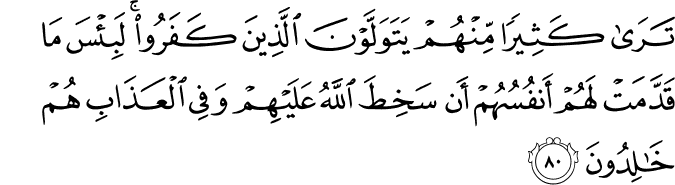 تَرَىٰ كَثِيرًا مِّنْهُمْ يَتَوَلَّوْنَ ٱلَّذِينَ كَفَرُوا۟ ۚ لَبِئْسَ مَا
قَدَّمَتْ لَهُمْ أَنفُسُهُمْ أَن سَخِطَ ٱللَّهُ عَلَيْهِمْ وَفِى ٱلْعَذَابِ هُمْ
خَـٰلِدُونَ ٨٠